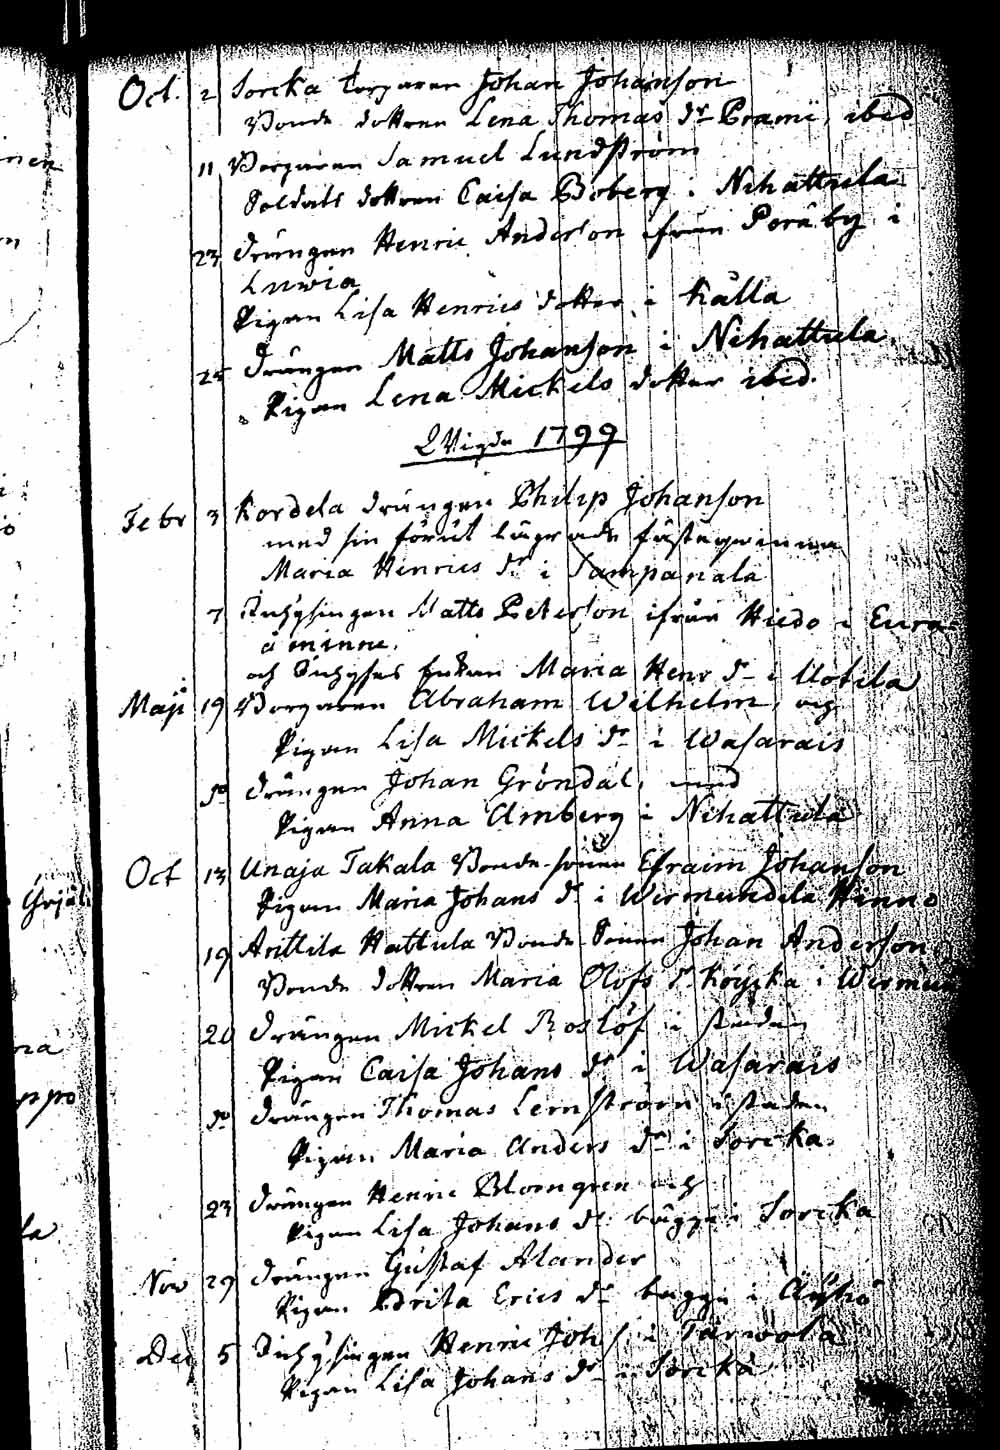 Oct. 2 Sorcka Torparen Johan Johanson
Bonde dottren Lena Thomas dr Prami, ibid
11 Borgaren Samuel Lundström
Soldats dottren Caisa Boberg i Nihattula
23 Drängen Henric Anderson ifrån Peräby i
Luwia
Pigan Lisa Henrics dotter i Källa
25 Drängen Matts Johanson i Nihattula
Pigan Lena Mickels dotter ibid.
Wigde 1799
Febr 3 Kordela drängen Philip Johanson
med sin förut lägrade fästeqwinna
Maria Henrics dr i Sampanala
7 Inhysingen Matts Peterson ifrån Hiedo i Eura
åminne.
och Inhyses Enkan Maria Henr dr i Uotila
Maji 19 Borgaren Abraham Wilhelm, och
Pigan Lisa Mickels dr i Wasarais
do Drängen Johan Gröndal, med
Pigan Anna Amberg i Nihattula
Oct 13 Unaja Takala Bonde-sonen Efraim Johanson
Pigan Maria Johans dr i Wermundila Hinno
19 Anttila Hattula Bonde Sonen Johan Anderson
Bonde dottren Maria Olofs d. Köyskä i Wermun
20 Drängen Mickel Roslöf i staden
Pigan Caisa Johans dr i Wasarais
do Drängen Thomas Lernström i staden
Pigan Maria Anders dr i Sorcka.
23 Drängen Henric Blomgren och
Pigan Lisa Johans dr bägge i Sorcka
Nov 29 Drängen Gustaf Alander
Pigan Brita Erics dr bägge i Äyhö
Dec 5 Inhysingen Henric Johs i Tarwola
Pigan Lisa Johans dr i Sorcka